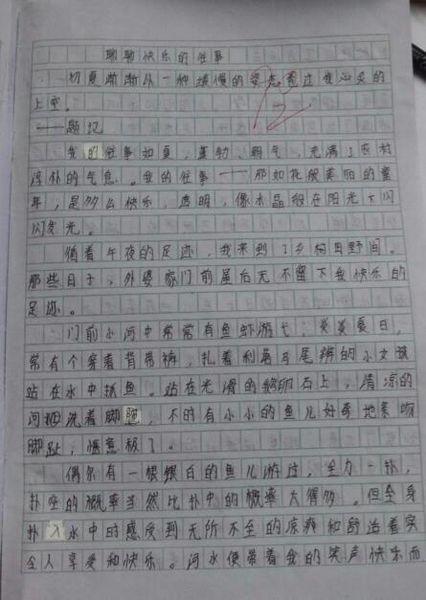 聊聊快乐的往事
一切夏渐渐从一种缓慢的姿态看过我心灵的
上空。
——题记
我的往事如夏，蓬勃、朝气，充满了农村
淳朴的气息。我的往事——那如花般美丽的童
年，是多么快乐，透明，像水晶般在阳光下闪
闪发光。
循着午夜的足迹，我来到了乡村田野间。
那些日子，外婆家门前屋后无不留下我快乐的
足迹。
门前小河中常常有鱼虾游弋；炎炎夏日，
常有个穿着背带裤，扎着利落马尾辫的小女孩
站在水中抓鱼。站在光滑的鹅卵石上，清凉的
河水洗着脚腕，不时有小小的鱼儿好奇地来吻
脚趾，惬意极了。
偶尔有一银银白的鱼儿游过，全力一扑，
扑空的概率当然比扑中的概率大得多。但全身
扑入水中时感受到无所不至的凉爽和舒适着实
令人享受和快乐。河水便带着我的笑声快乐而